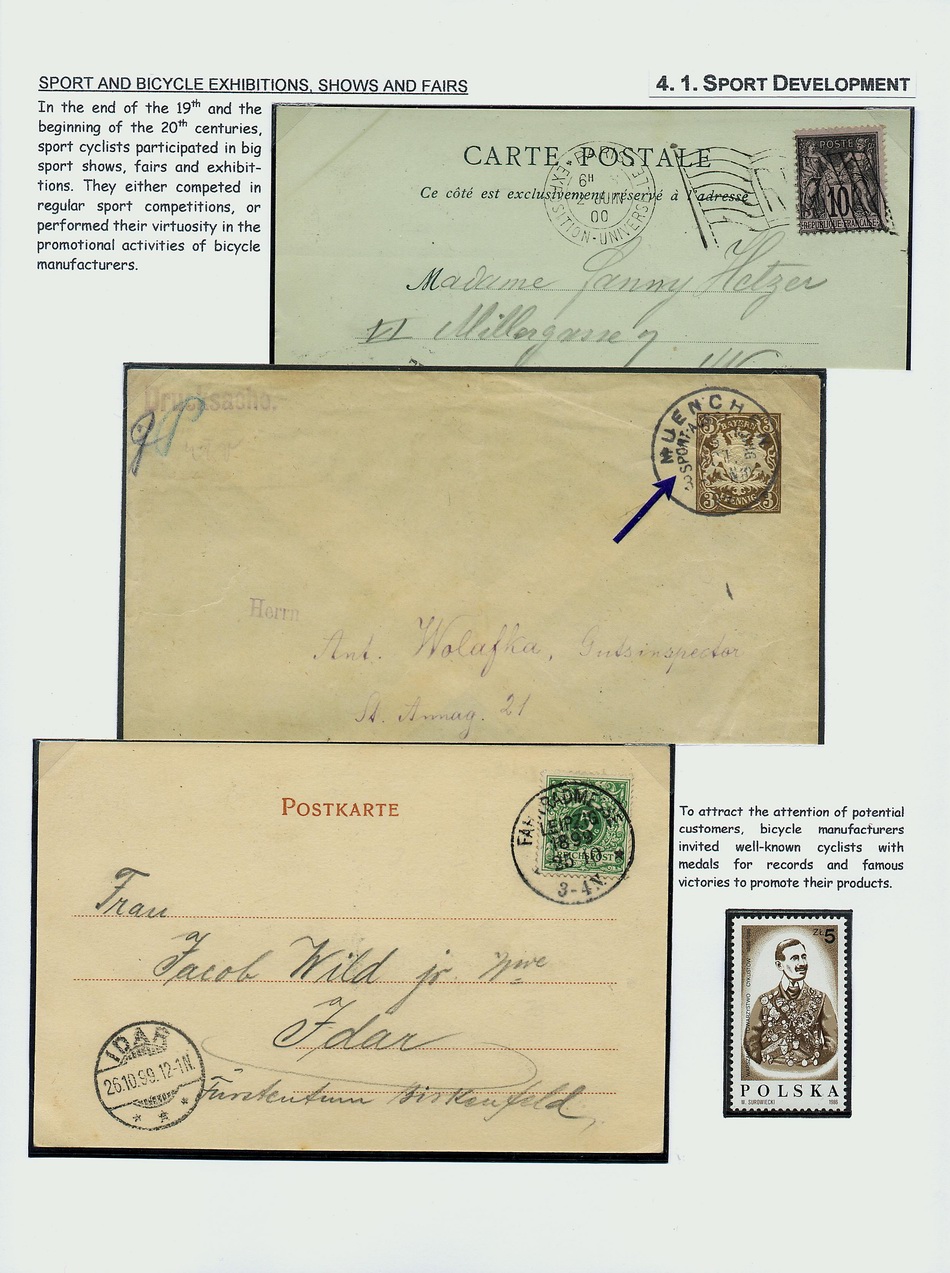 SPORT AND BICYCLE EXHIBITIONS, SHOWS AND FAIRS
4. 1. SPORT DEVELOPMENT
In the end of the 19th and the
beginning of the 20th centuries,
sport cyclists participated in big
sport shows, fairs and exhibit-
tions. They either competed in
regular sport competitions, or
performed their virtuosity in the
promotional activities of bicycle
manufacturers.
CARTE POSTALE
Ce côté est exclusivement réservé à l'adresse
6H
2 JUIN
00
EXPOSITION-UNIVERSELLE
POSTE
10
REPUBLIQUE FRANÇAISE
Madame Fanny Hetzer
VI Millergasse 7
Drucksache.
MUENCHEN
SPORT-A
BAYERN
3 3
PFENNIG
Herrn
Ant. Wolafka, Gutsinspector
St. Annag. 21
POSTKARTE
FAHRRADMESSE
LEIPZIG
1899
25 10
3-4N.
5
REICHSPOST
Frau
Jacob Wild jr
Idar
Fürstentum Birkenfeld
IDAR
26.10.99.12-1N.
To attract the attention of potential
customers, bicycle manufacturers
invited well-known cyclists with
medals for records and famous
victories to promote their products.
ZŁ5
POLSKA
W. SUROWIECKI 1986